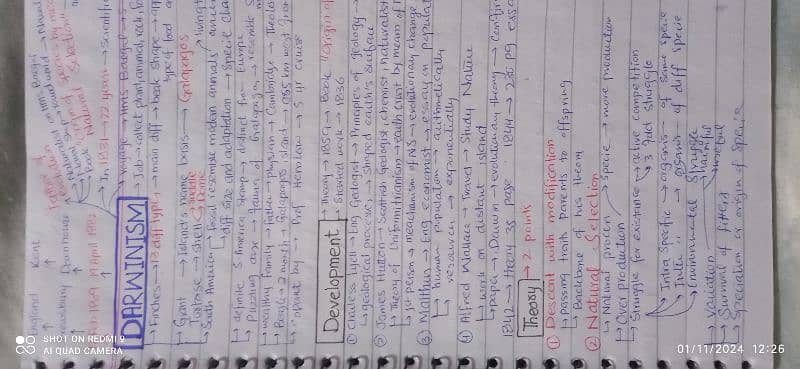 England Kent
Shrewsbury Downhouse
19 April 1882
HMS Beagle
Book "Origin of species by means of
Natural Selection"
In 1831 → 22 years → Scientific
DARWINISM
Voyage → HMS Beagle
Job → collect plant, animal, rock, fossil
Finches → 13 diff types → main diff → beak shape
type of food
Giant Tortoise → island's name basis → Galapagos
Shell Saddle Dome
South America → fossil resemble modern animals
diff size and adaptation → Special
definite S America Stamp → distinct from Europe
Puzzling case → fauna of Galapagos → resemble S
wealthy family → father → Physician → Cambridge → Theology
Beagle → 2 month → Galapagos island → 985 km west from
appoint by → Prof Henslow → 5 yr cruise
Development → Theory → 1859 → Book "Origin of
Started work → 1836
① Charles Lyell → Eng Geologist → Principles of geology →
geological processes → shaped earth's surface
② James Hutton → Scottish Geologist, chemist, naturalist
theory of Uniformitarianism → earth crust by mean of
1st person → mechanism of NS → evolutionary change
③ Malthus → Eng economist → essay on population
human population → arithmetically
resources → exponentially
④ Alfred Wallace → Travel → Study Nature
work on distant island
paper → Darwin → evolutionary theory → confirm
1842 → theory 35 page 1844 → 230 pg essay
Theory → 2 points
① Descent with modification
passing traits parents to offspring
Backbone of his theory
② Natural Selection
Natural process → specie → more production
Over production
Struggle for existance → active competition
3 fact struggle
Intra specific → organism of same specie
Inter " → organism of diff specie
Environmental struggle
Variation harmful
useful
Survival of fittest
Speciation or origin of specie
SHOT ON REDMI 9
AI QUAD CAMERA
01/11/2024 12:26